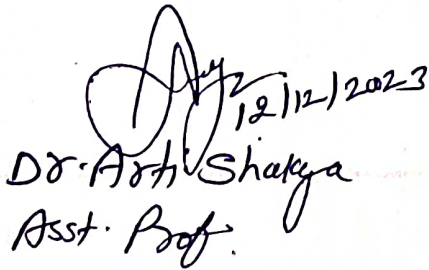 12/12/2023
Dr. Arti Shakya
Asst. Prof.